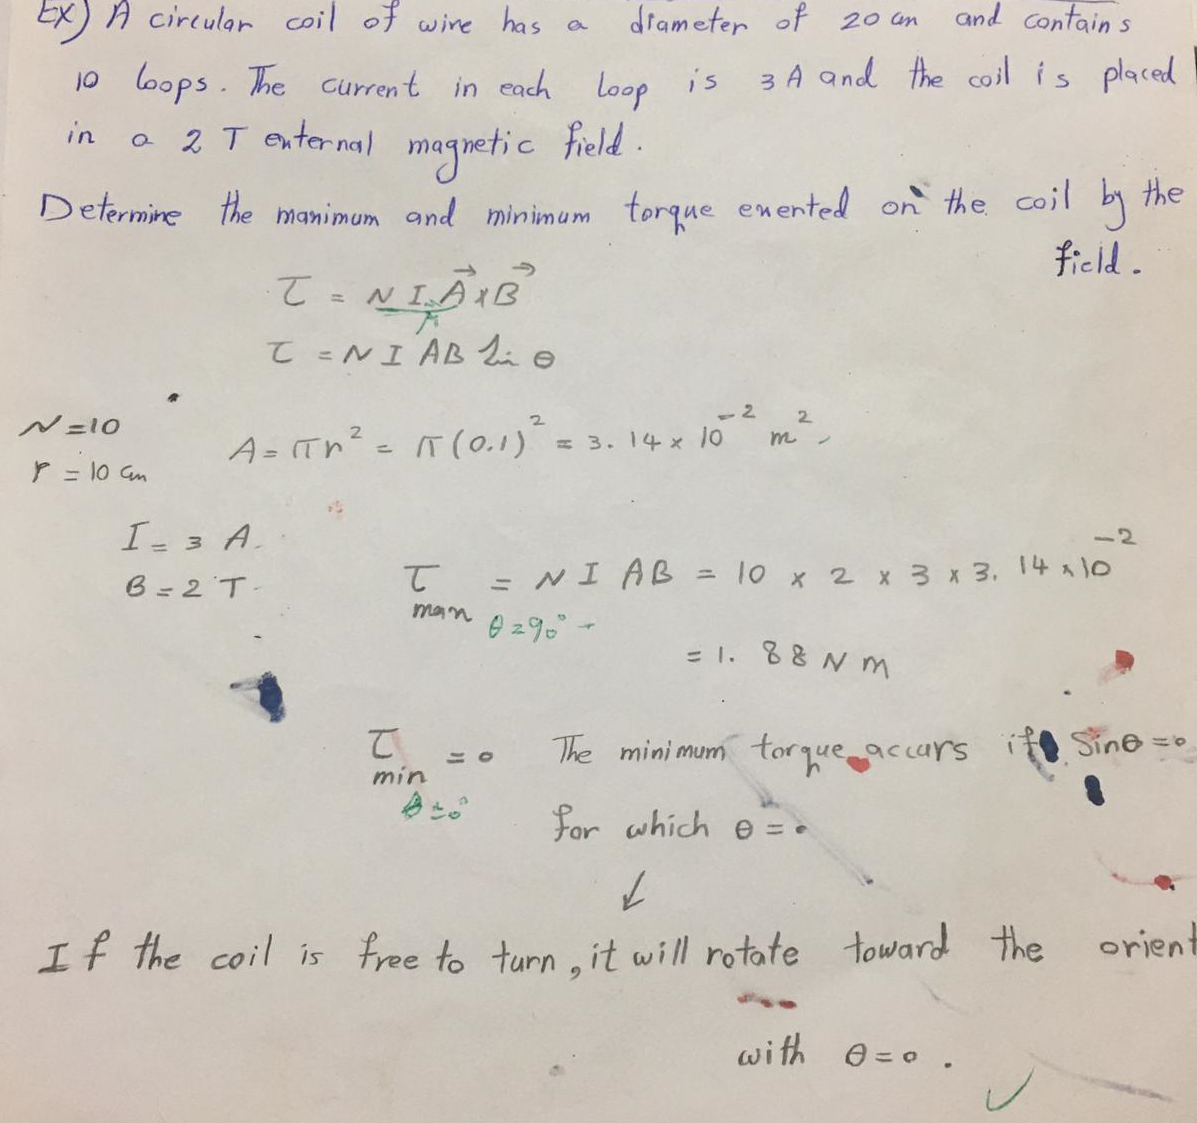 Ex) A circular coil of wire has a diameter of 20 cm and contains
10 loops. The current in each loop is 3 A and the coil is placed
in a 2 T external magnetic field.
Determine the maximum and minimum torque exerted on the coil by the
field.
τ = N I A⃗ × B⃗
μ
τ = N I AB Sin θ
N = 10
r = 10 cm
A = πr² = π(0.1)² = 3.14 × 10⁻² m²
I = 3 A.
B = 2 T.
τ max = N I AB = 10 × 2 × 3 × 3.14 × 10⁻²
θ = 90°
= 1.88 N m
τ min = 0 The minimum torque accurs if Sinθ = 0
θ = 0°
for which θ = 0
↓
If the coil is free to turn, it will rotate toward the orient
with θ = 0 .